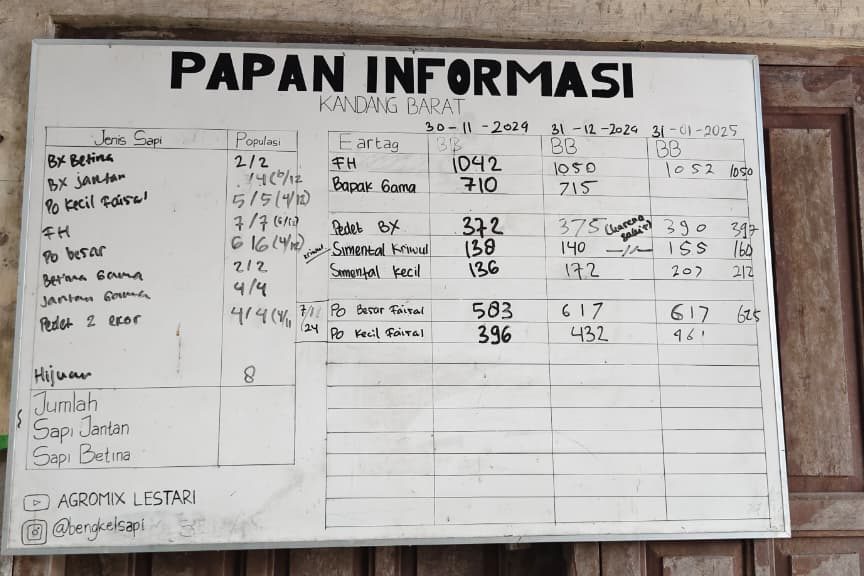 PAPAN INFORMASI
KANDANG BARAT
Jenis Sapi Populasi
BX Betina 2/2
BX jantan /4 (6/12
PO Kecil Faisal 5/5 (4/12)
FH 7/7 (6/12)
PO besar 6/6 (4/12)
Betina Gama 2/2
Jantan Gama 4/4
Pedet 2 ekor 4/4 (4/11
Hijuan 8
Jumlah
Sapi Jantan
Sapi Betina
AGROMIX LESTARI
@bengkelsapi
30-11-2024 31-12-2024 31-01-2025
Eartag BB BB BB
FH 1042 1050 1052 1050
Bapak Gama 710 715
Pedet BX 372 375 (karena 390 397
Kriwul Simental Kriwul 138 140 -//- 155 160
Simental Kecil 136 172 207 212
7/11 PO Besar Faisal 583 617 617 625
/24 PO Kecil Faisal 396 432 461